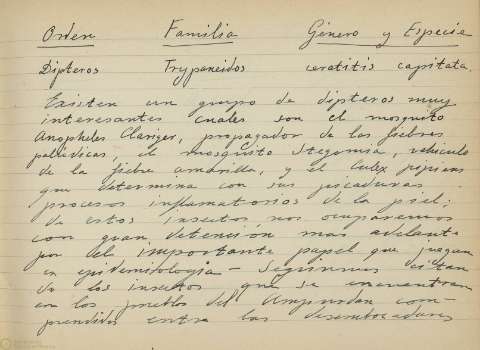 Orden Familia Género y Especie
Dipteros Trypaneidos ceratitis capitata.
Existen un grupo de dipteros muy
interesantes cuales son el mosquito
Anopheles Claviger, propagador de las fiebres
palúdicas, el mosquito Stegomia, vehiculo
de la fiebre amarilla, y el Culex pipiens
que determina con sus picaduras
procesos inflamatorios de la piel;
de estos insectos nos ocuparemos
con gran detención mas adelante
por el importante papel que juegan
en epidemiologia - Seguiremos citan
do los insectos que se encuentran
en los pueblos del Ampurdan com-
prendidos entre las desembocaduras